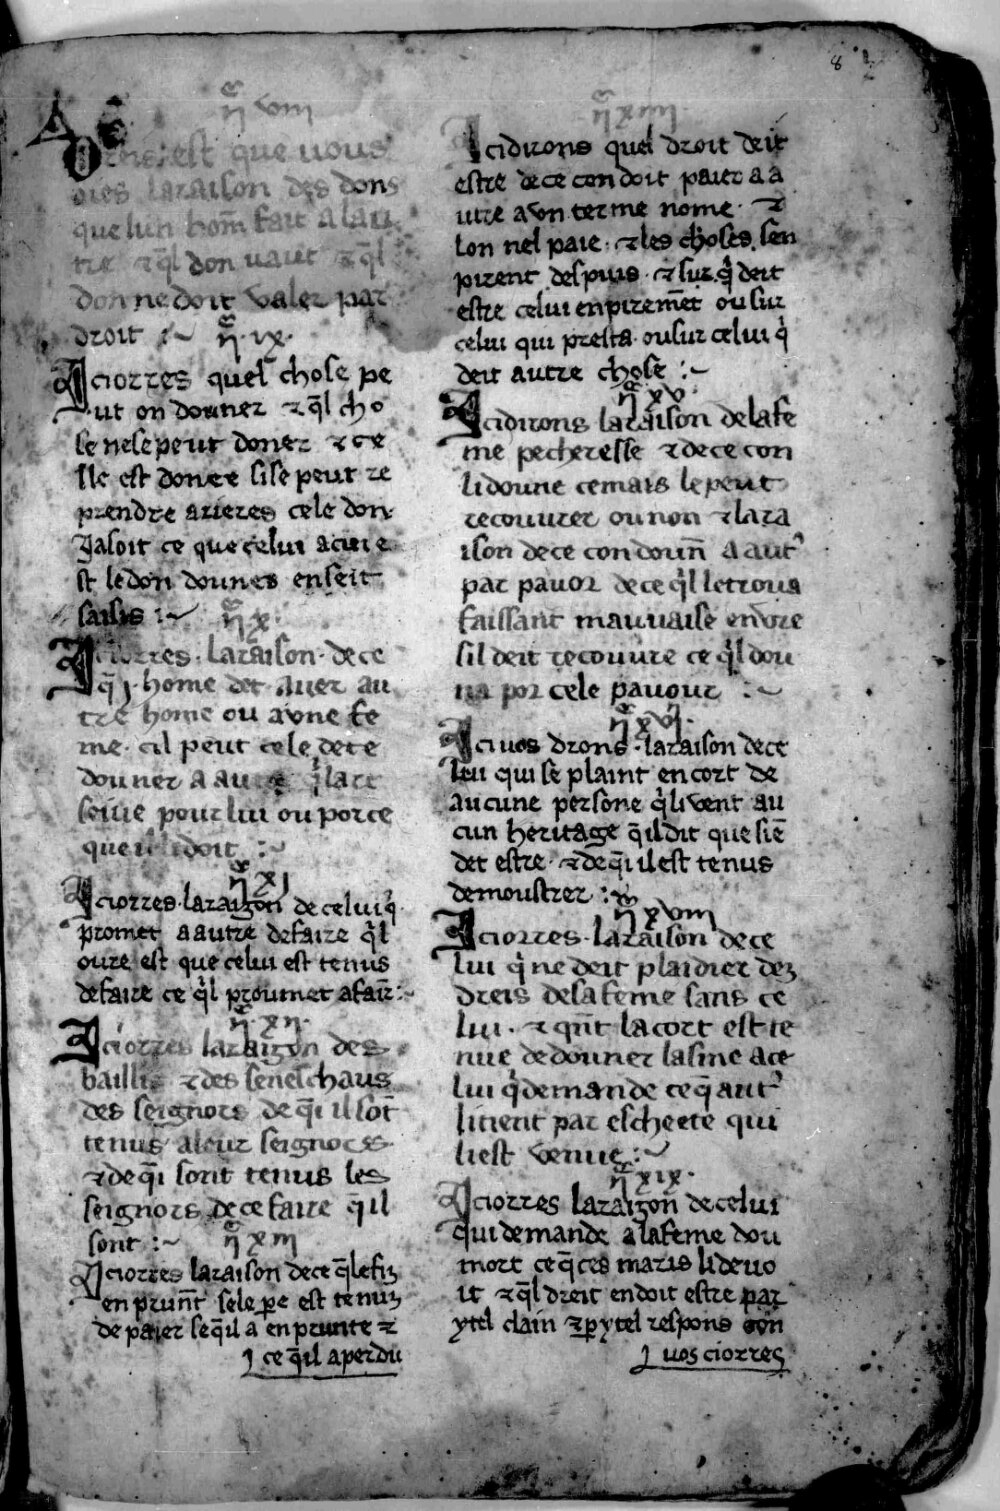 8
q̃ viii
Dreis est que uous
oies laraison des dons
que lun hom̃ fait a lau
tre ⁊ q̃l don uaut ⁊ q̃l
don ne doit valer par
droit :~ q̃ · ix ·
Iciorres quel chose pe
ut on donner ⁊ q̃l cho
se nese peut doner ⁊ ce
lle est donee sise peut re
prendre arieres cele don
Iasoit ce que celui acui e
st ledon dounes enseit
saisis :~ q̃ x
Iciorres · laraison · de ce
q̃ j · home det auer au
tre home ou avne fe
me · cil peut cele dete
douner a autre q̓lare
seiue pour lui ou por ce
que il lidoit :~
q̃ xj
Iciorres · laraizon de celui q̓
promet aautre defaire q̓l
oure est que celui est tenus
defaire ce q̓l proumet afair̃ :~
q̃ · xij ·
Iciorres laraizon des
baillis ⁊ des senelchaus
des seignors de q̃i il sõt
tenus aleur seignors
⁊ de q̃i sont tenus les
seignors de ce faire q̃ il
sont :~ q̃ x iij
Iciorres laraison dece q̃ lefiz
en prunt̃ sele pere est tenuz
de paier seq̃il a enprunte ⁊
j ce q̃il aperdu
q̃ xiiij
Icidirons quel droit deit
estre dece con doit paier a a
utre a vn terme nome · ⁊
lon nel paie · ⁊ les choses sen
pirent despuis · ⁊ sur q̓ deit
estre celui enpirem̃et ou sur
celui qui presta · ousur celui q̓
deit autre chose :~
q̃ x v ·
Icidirons laraison delafe
me pecheresse ⁊ dece con
lidoune cemais le peut
recouurer ou non ⁊ lara
ison dece con doun̄ a aut᾿
par pavor dece q̓l letroua
faissant mauuaise envre
sil deit recouure ce q̓l dou
na por cele pauour :~
q̃ x vj ·
Ici uos drons · laraison dece
lui qui se plaint en cort de
aucune persone q̓ li vent au
cun heritage q̃ il dit que siẽ
det estre · ⁊ de q̃i il est tenus
demoustrer :~
q̃ x viii
Iciorres · laraison dece
lui q̓ ne deit plaidier dez
dreis desafeme sans ce
lui · ⁊ qñt la cort est te
nue dedouner lasine ace
lui q̓demande ce q̃ aut᾿
litient par escheete qui
liest venue :~
q̃ xix ·
Iciorres laraizon decelui
qui demande alafeme dou
mort ce q̃ ces maris lideuo
it ⁊ q̃l dreit en doit estre par
ytel clain ⁊ p ytel respons con
j uos ciorres